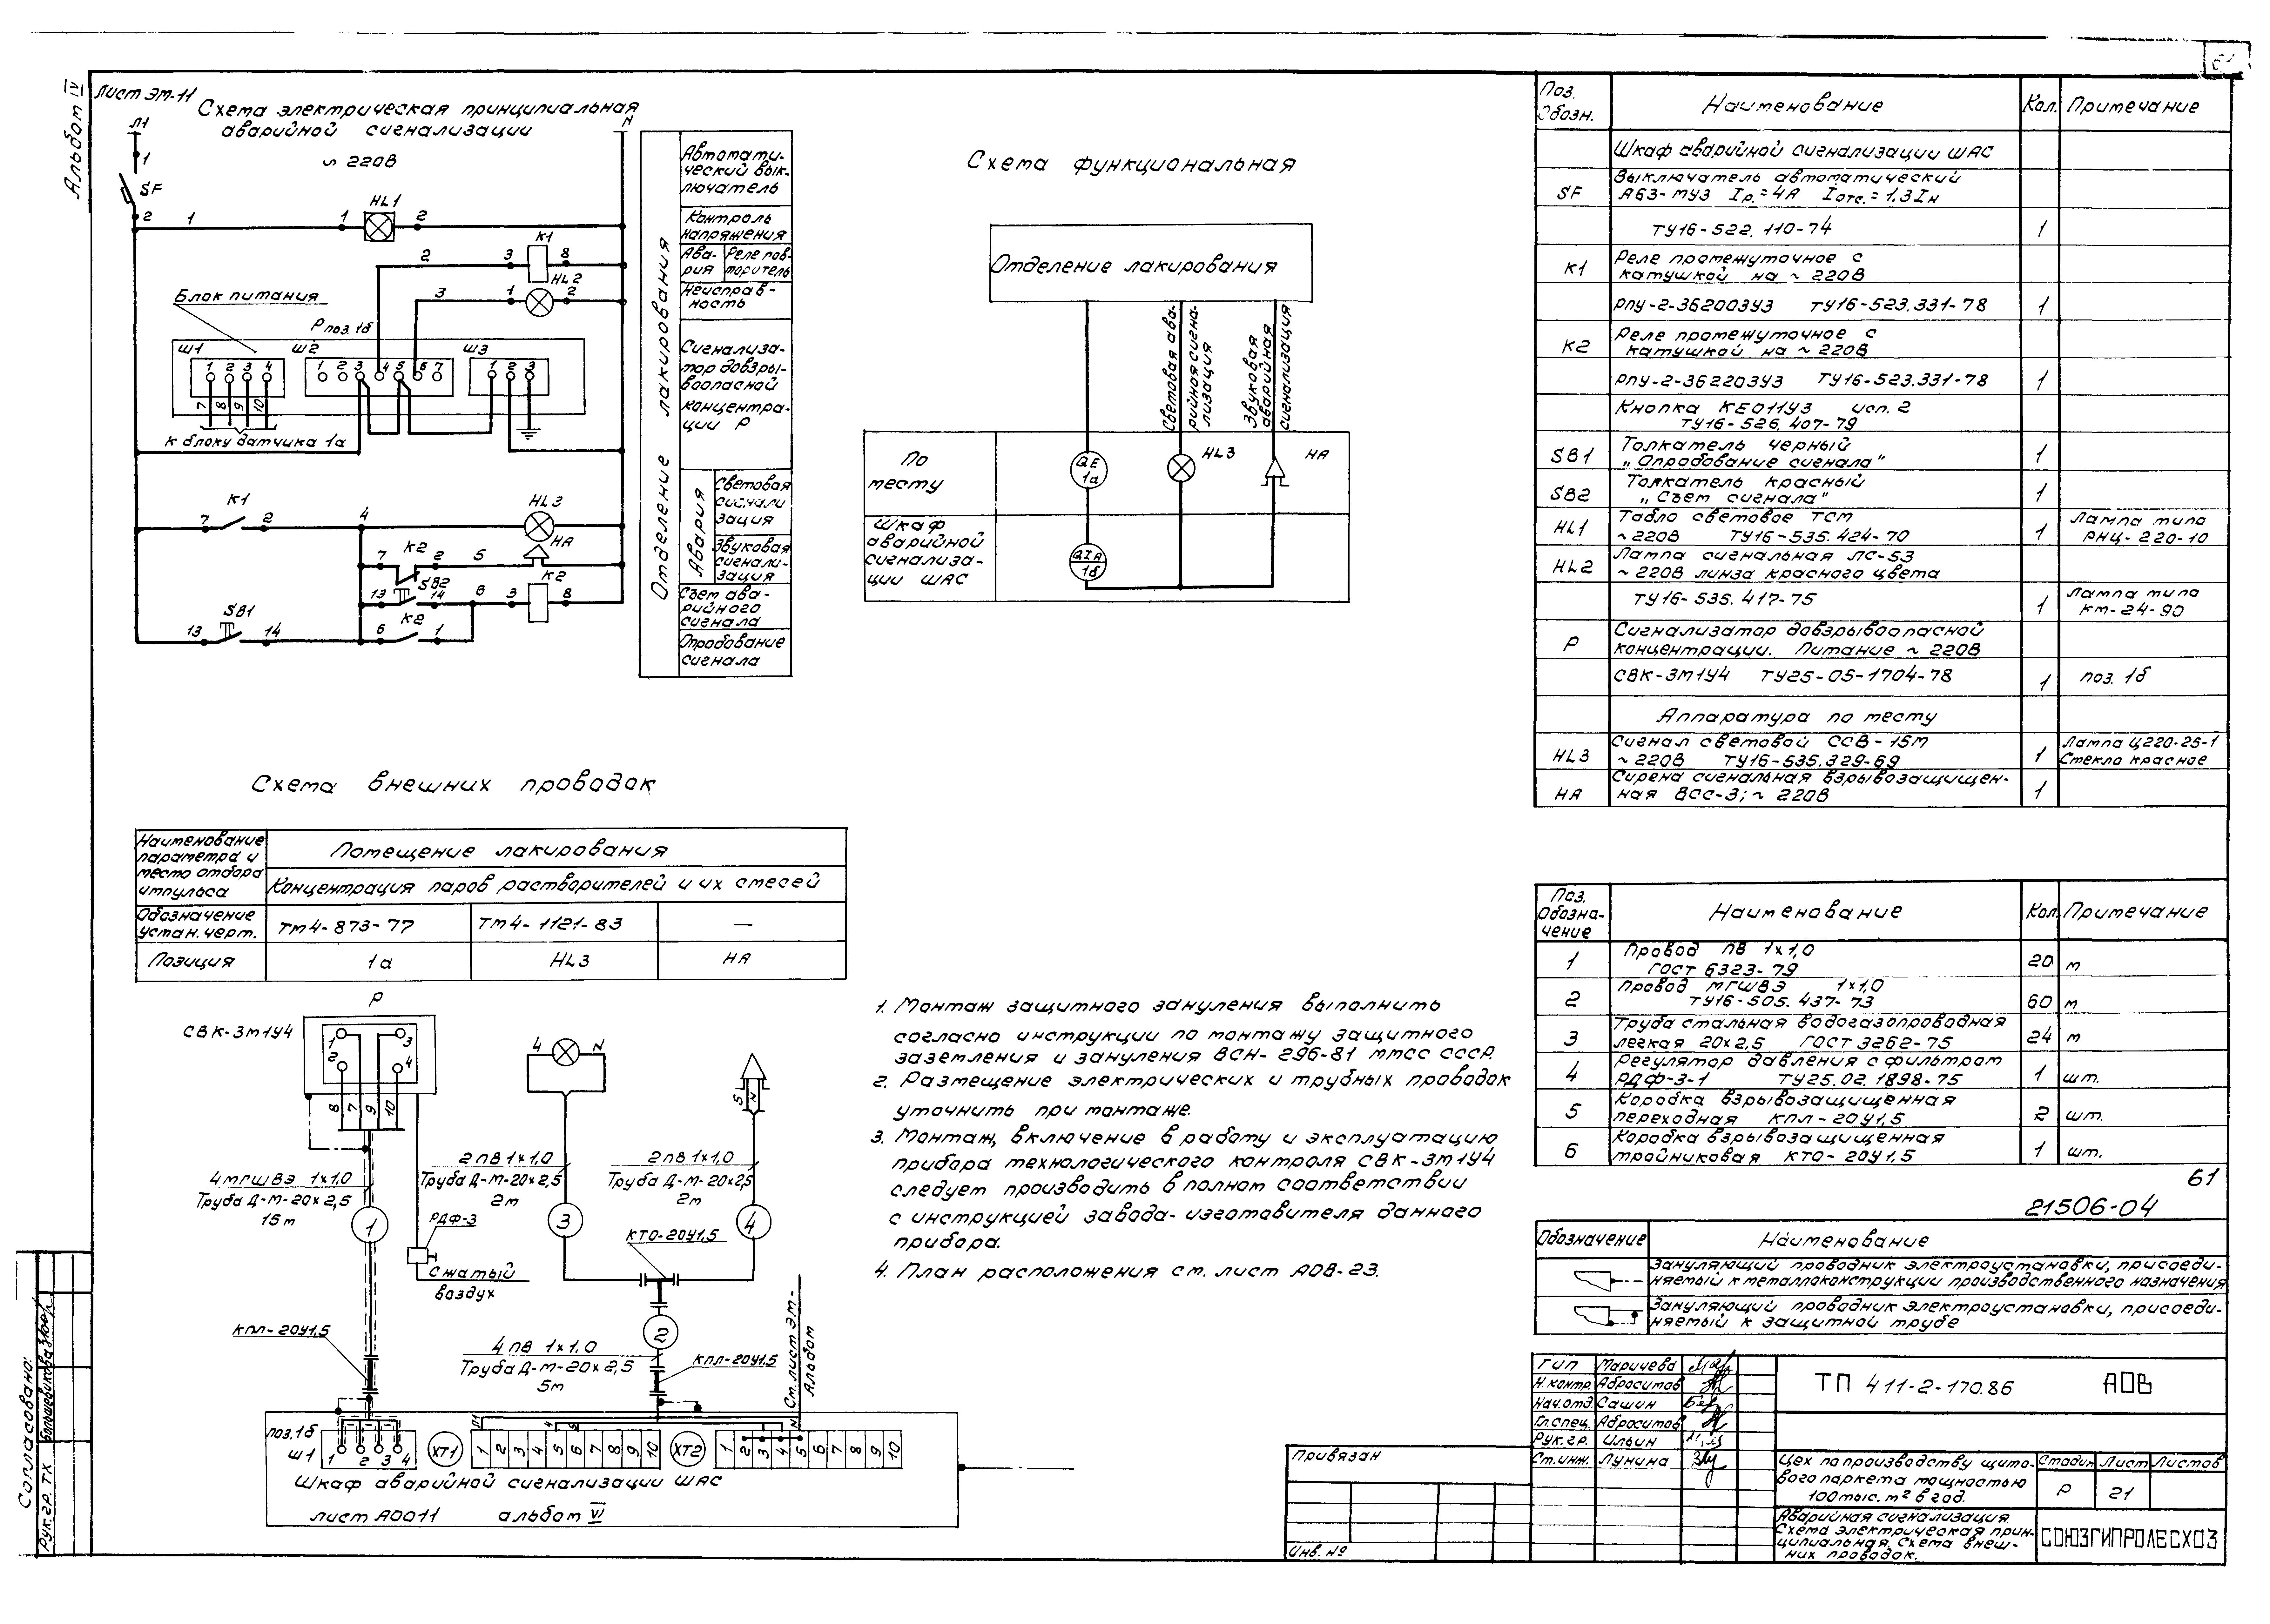 Альбом IV
Лист ЭМ-11
Схема электрическая принципиальная
аварийной сигнализации
~ 220В
Л1
N
1
SF
2
1
1
HL1
2
2
3
K1
8
3
1
HL2
2
Блок питания
Р поз.1б
Ш1
Ш2
Ш3
1 2 3 4
1 2 3 4 5 6 7
1 2 3
7 8 9 10
к блоку датчика 1а
7
K1
2
4
HL3
HA
7
K2
2
5
13
SB2
14
6
3
K2
8
13
SB1
14
6
K2
1
Отделение лакирования
Автомати-
ческий вык-
лючатель
Контроль
напряжения
Ава-
рия
Реле пов-
торитель
Неисправ-
ность
Сигнализа-
тор довзры-
воопасной
концентра-
ции Р
Авария
Световая
сигнали
зация
Звуковая
сигнали-
зация
Съем ава-
рийного
сигнала
Опробование
сигнала
Схема функциональная
Отделение лакирования
Световая ава-
рийная сигна-
лизация
Звуковая
аварийная
сигнализация
По
месту
QE
1а
HL3
HA
Шкаф
аварийной
сигнализа-
ции ШАС
QIA
1б
Поз.
Обозн.
Наименование
Кол.
Примечание
Шкаф аварийной сигнализации ШАС
SF
Выключатель автоматический
А63-МУ3 Iр.=4А Iотс.=1,3Iн
ТУ16-522.110-74
1
K1
Реле промежуточное с
катушкой на ~ 220В
РПУ-2-362003У3 ТУ16-523.331-78
1
K2
Реле промежуточное с
катушкой на ~ 220В
РПУ-2-362203У3 ТУ16-523.331-78
1
Кнопка КЕ011У3 исп. 2
ТУ16-526.407-79
SB1
Толкатель черный
„Опробование сигнала"
1
SB2
Толкатель красный
„Съем сигнала"
1
HL1
Табло световое ТСМ
~220В ТУ16-535.424-70
1
Лампа типа
РНЦ-220-10
HL2
Лампа сигнальная ЛС-53
~220В линза красного цвета
ТУ16-535.417-75
1
Лампа типа
КМ-24-90
Р
Сигнализатор довзрывоопасной
концентрации. Питание ~ 220В
СВК-3М1У4 ТУ25-05-1704-78
1
поз. 1б
Аппаратура по месту
HL3
Сигнал световой ССВ-15М
~ 220В ТУ16-535.329-69
1
Лампа Ц220-25-1
Стекло красное
HA
Сирена сигнальная взрывозащищен-
ная ВСС-3; ~ 220В
1
Схема внешних проводок
Наименование
параметра и
место отбора
импульса
Помещение лакирования
Концентрация паров растворителей и их смесей
Обозначение
устан. черт.
ТМ4-873-77
ТМ4-1121-83
—
Позиция
1а
HL3
HA
Р
СВК-3М1У4
1 3
2 4
8 7 9 10
4 N
5 N
4МГШВЭ 1×1,0
Труба Д-М-20×2,5
15м
1
РДФ-3
Сжатый
воздух
2ПВ 1×1,0
Труба Д-М-20×2,5
2м
3
2ПВ 1×1,0
Труба Д-М-20×2,5
2м
4
КТО-20У1,5
2
4ПВ 1×1,0
Труба Д-М-20×2,5
5м
КПЛ-20У1,5
КПЛ-20У1,5
См. лист ЭМ-
Альбом
поз.1б
Ш1
1 2 3 4
ХТ1
1 2 3 4 5 6 7 8 9 10
ХТ2
1 2 3 4 5 6 7 8 9 10
Л1
4
N
Шкаф аварийной сигнализации ШАС
лист АОО11 альбом VI
1. Монтаж защитного зануления выполнить
согласно инструкции по монтажу защитного
заземления и зануления ВСН-296-81 ММСС СССР.
2. Размещение электрических и трубных проводок
уточнить при монтаже.
3. Монтаж, включение в работу и эксплуатацию
прибора технологического контроля СВК-3М1У4
следует производить в полном соответствии
с инструкцией завода-изготовителя данного
прибора.
4. План расположения см. лист АОВ-23.
Поз.
Обозна-
чение
Наименование
Кол.
Примечание
1
Провод ПВ 1×1,0
ГОСТ 6323-79
20
м
2
Провод МГШВЭ 1×1,0
ТУ16-505.437-73
60
м
3
Труба стальная водогазопроводная
легкая 20×2,5 ГОСТ 3262-75
24
м
4
Регулятор давления с фильтром
РДФ-3-1 ТУ25.02.1898-75
1
шт.
5
Коробка взрывозащищенная
переходная КПЛ-20У1,5
2
шт.
6
Коробка взрывозащищенная
тройниковая КТО-20У1,5
1
шт.
61
21506-04
Обозначение
Наименование
Зануляющий проводник электроустановки, присоеди-
няемый к металлоконструкции производственного назначения
Зануляющий проводник электроустановки, присоеди-
няемый к защитной трубе
ГИП Маричева
Н.контр. Абросимов
Нач.отд. Сашин
Гл.спец. Абросимов
Рук.гр. Ильин
Ст.инж. Лунина
ТП 411-2-170.86
АОВ
Цех по производству щито-
вого паркета мощностью
100тыс. м² в год.
Стадия
Лист
Листов
Р
21
Аварийная сигнализация.
Схема электрическая прин-
ципиальная. Схема внеш-
них проводок.
СОЮЗГИПРОЛЕСХОЗ
Привязан
Инв. №
Согласовано:
Рук. гр. ТХ